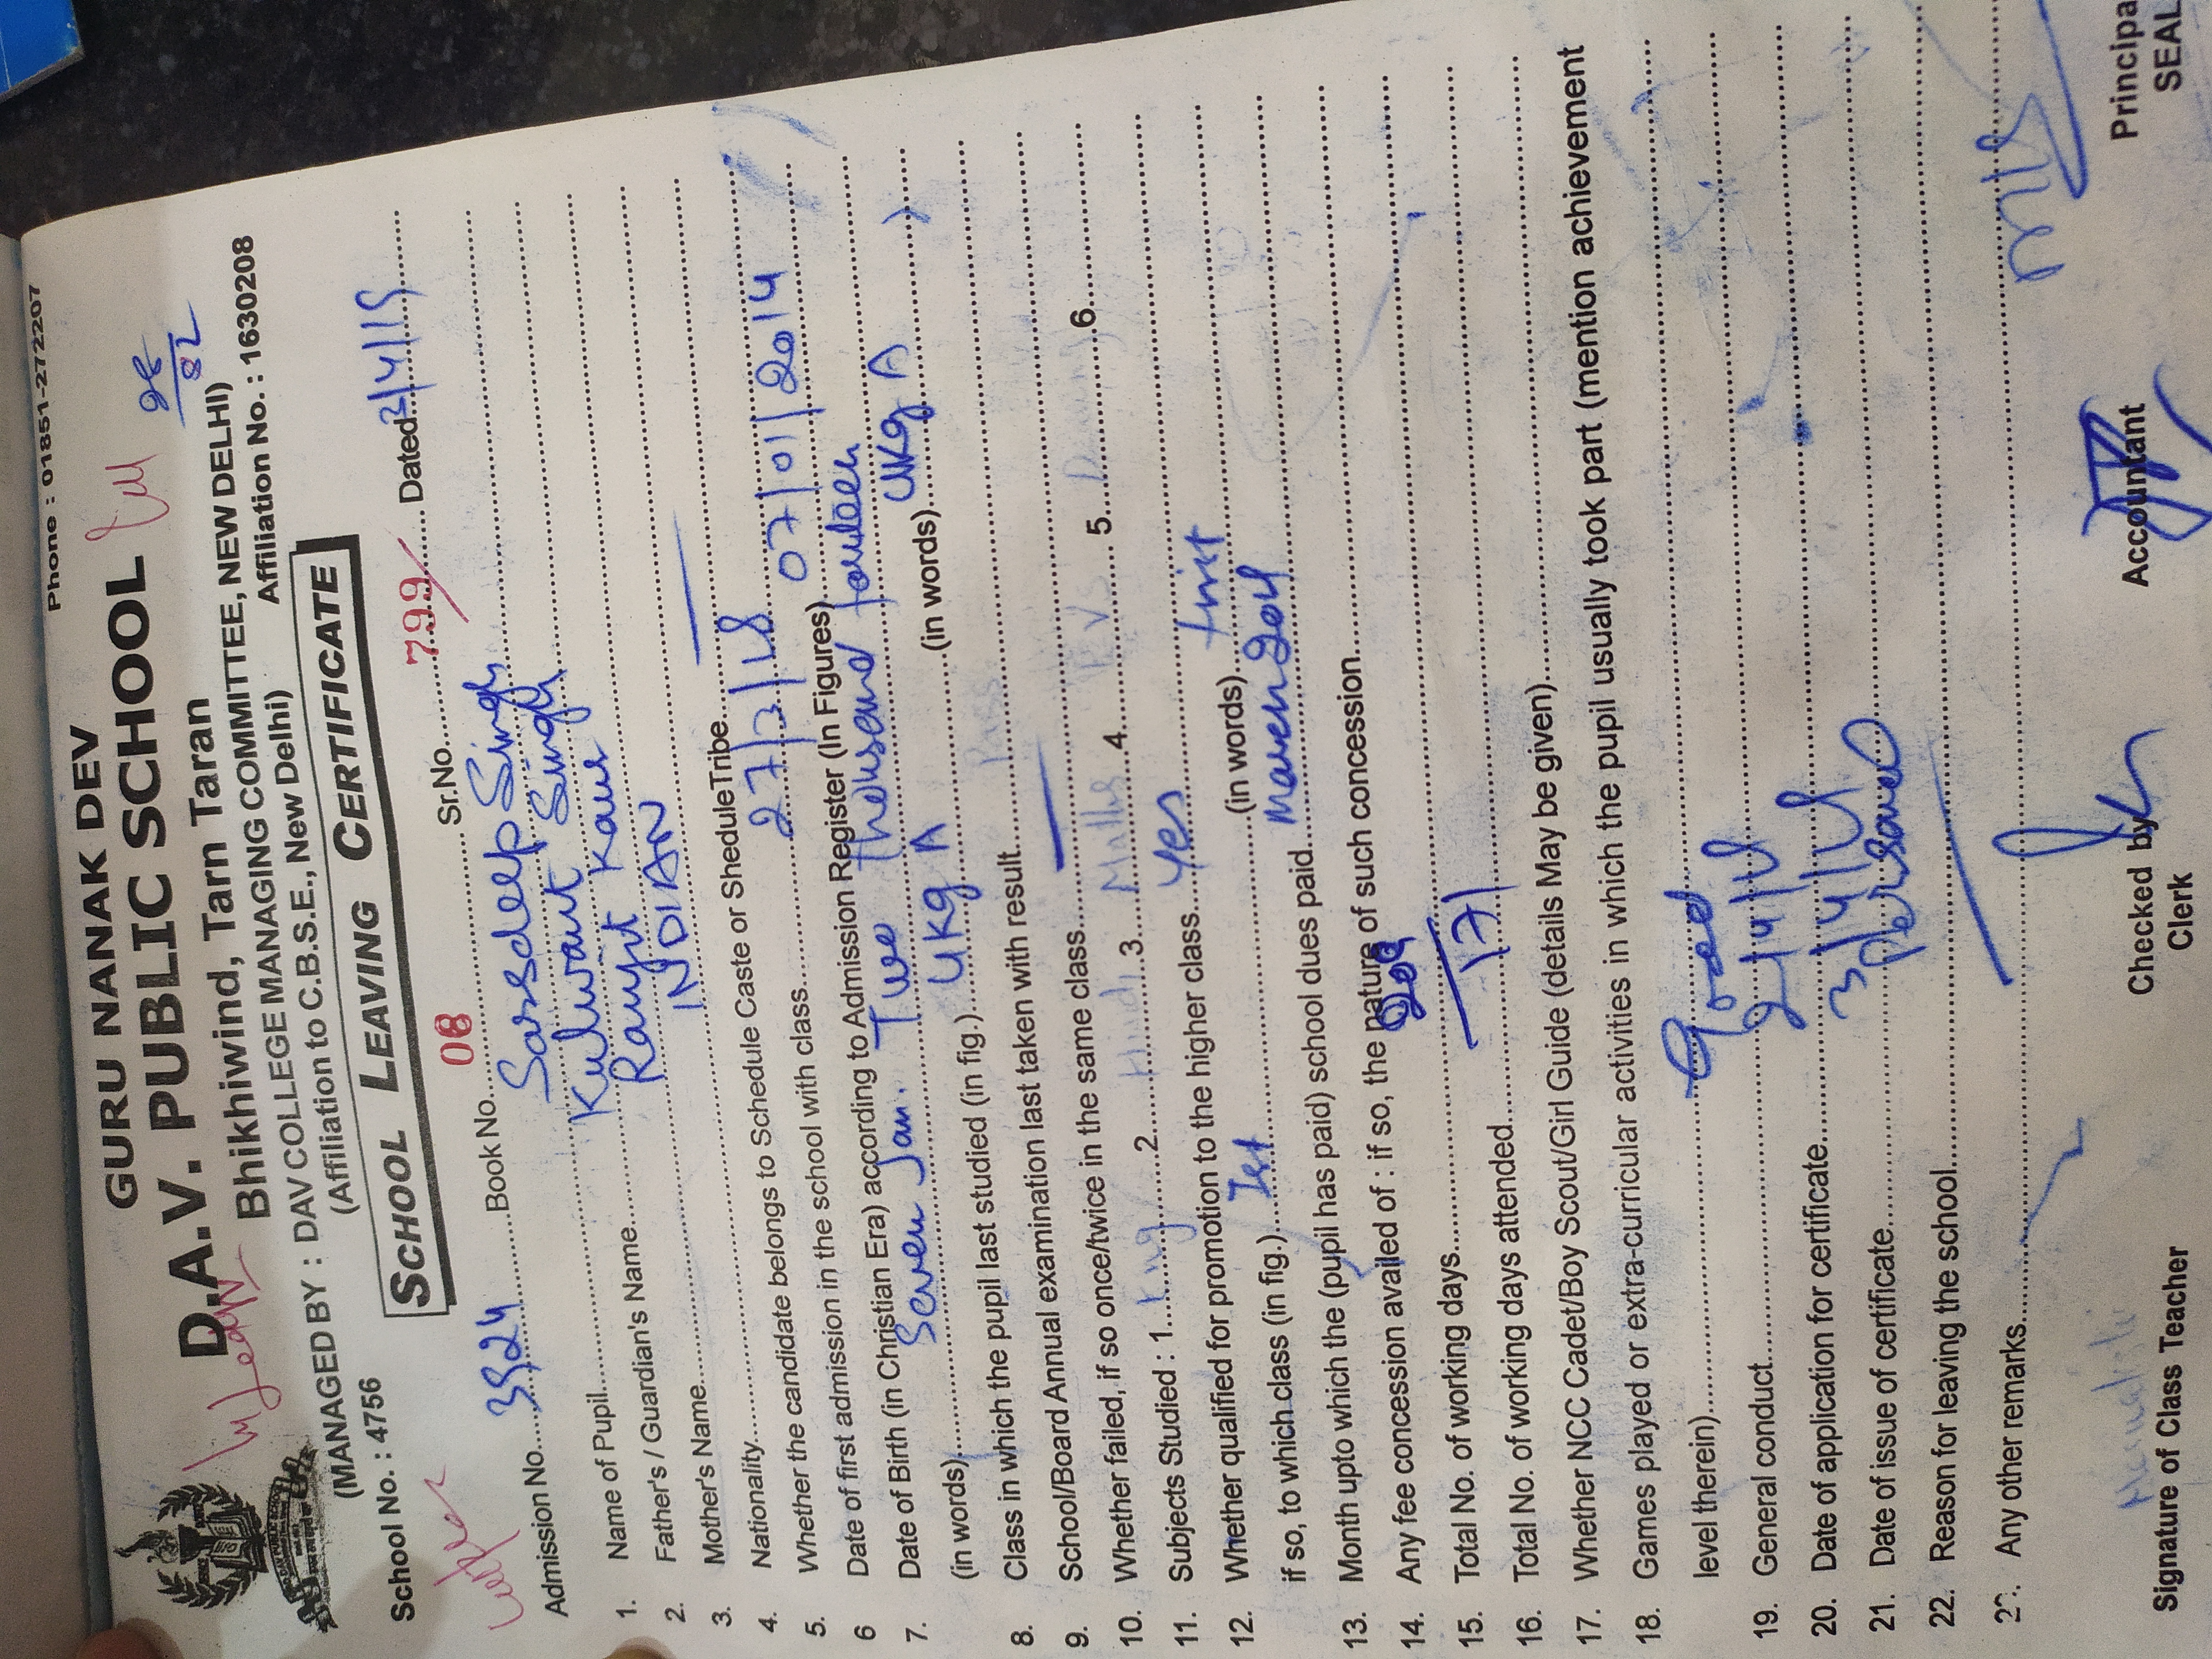 Phone : 01851-272207
GURU NANAK DEV
D.A.V. PUBLIC SCHOOL
Bhikhiwind, Tarn Taran
(MANAGED BY : DAV COLLEGE MANAGING COMMITTEE, NEW DELHI)
(Affiliation to C.B.S.E., New Delhi)
School No. : 4756 Affiliation No. : 1630208
SCHOOL LEAVING CERTIFICATE
Admission No. 3924 Book No. 08 Sr.No. 799 Dated
1. Name of Pupil Sarsdeep Singh
2. Father's / Guardian's Name Kulwant Singh
3. Mother's Name Ranjit Kaur
4. Nationality INDIAN
5. Whether the candidate belongs to Schedule Caste or SheduleTribe
6 Date of first admission in the school with class 27/3/18
7. Date of Birth (in Christian Era) according to Admission Register (In Figures) 07/01/2014
(in words) Seven Jan. Two thousand fourteen
8. Class in which the pupil last studied (in fig.) UKG A (in words) UKG A
9. School/Board Annual examination last taken with result Pass
10. Whether failed, if so once/twice in the same class
11. Subjects Studied : 1. Eng 2. Hindi 3. Maths 4. EVS 5. 6.
12. Whether qualified for promotion to the higher class Yes
if so, to which class (in fig.) Ist (in words)
13. Month upto which the (pupil has paid) school dues paid
14. Any fee concession availed of : if so, the nature of such concession
15. Total No. of working days
16. Total No. of working days attended 171
17. Whether NCC Cadet/Boy Scout/Girl Guide (details May be given)
18. Games played or extra-curricular activities in which the pupil usually took part (mention achievement
level therein)
19. General conduct Good
20. Date of application for certificate
21. Date of issue of certificate
22. Reason for leaving the school Personal
Any other remarks
Signature of Class Teacher Checked by Clerk Accountant Principal SEAL